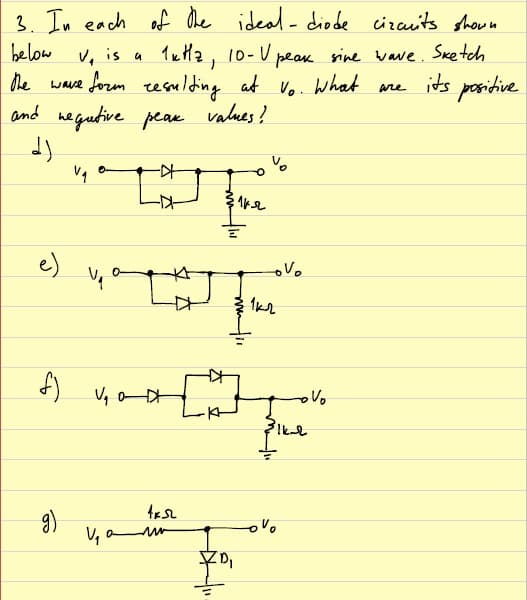 3. In each of the ideal-diode circuits shown
below V₁ is a 1kHz, 10-V peak sine wave. Sketch
the wave form resulting at Vo. What are its positive
and negative peak values?
d)
V₁ Vo
1kΩ
e) V₁ Vo
1kΩ
f) V₁ Vo
1kΩ
1kΩ
g) V₁ Vo
D₁